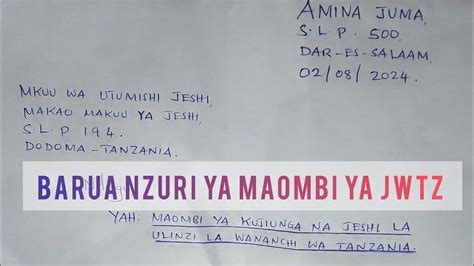 AMINA JUMA,
S.L.P. 500,
DAR-ES-SALAAM,
02/08/2024.
MKUU WA UTUMISHI JESHI,
MAKAO MAKUU YA JESHI,
S L P 194.
DODOMA-TANZANIA.
BARUA NZURI YA MAOMBI YA JWTZ
YAH: MAOMBI YA KUJIUNGA NA JESHI LA
ULINZI LA WANANCHI WA TANZANIA.